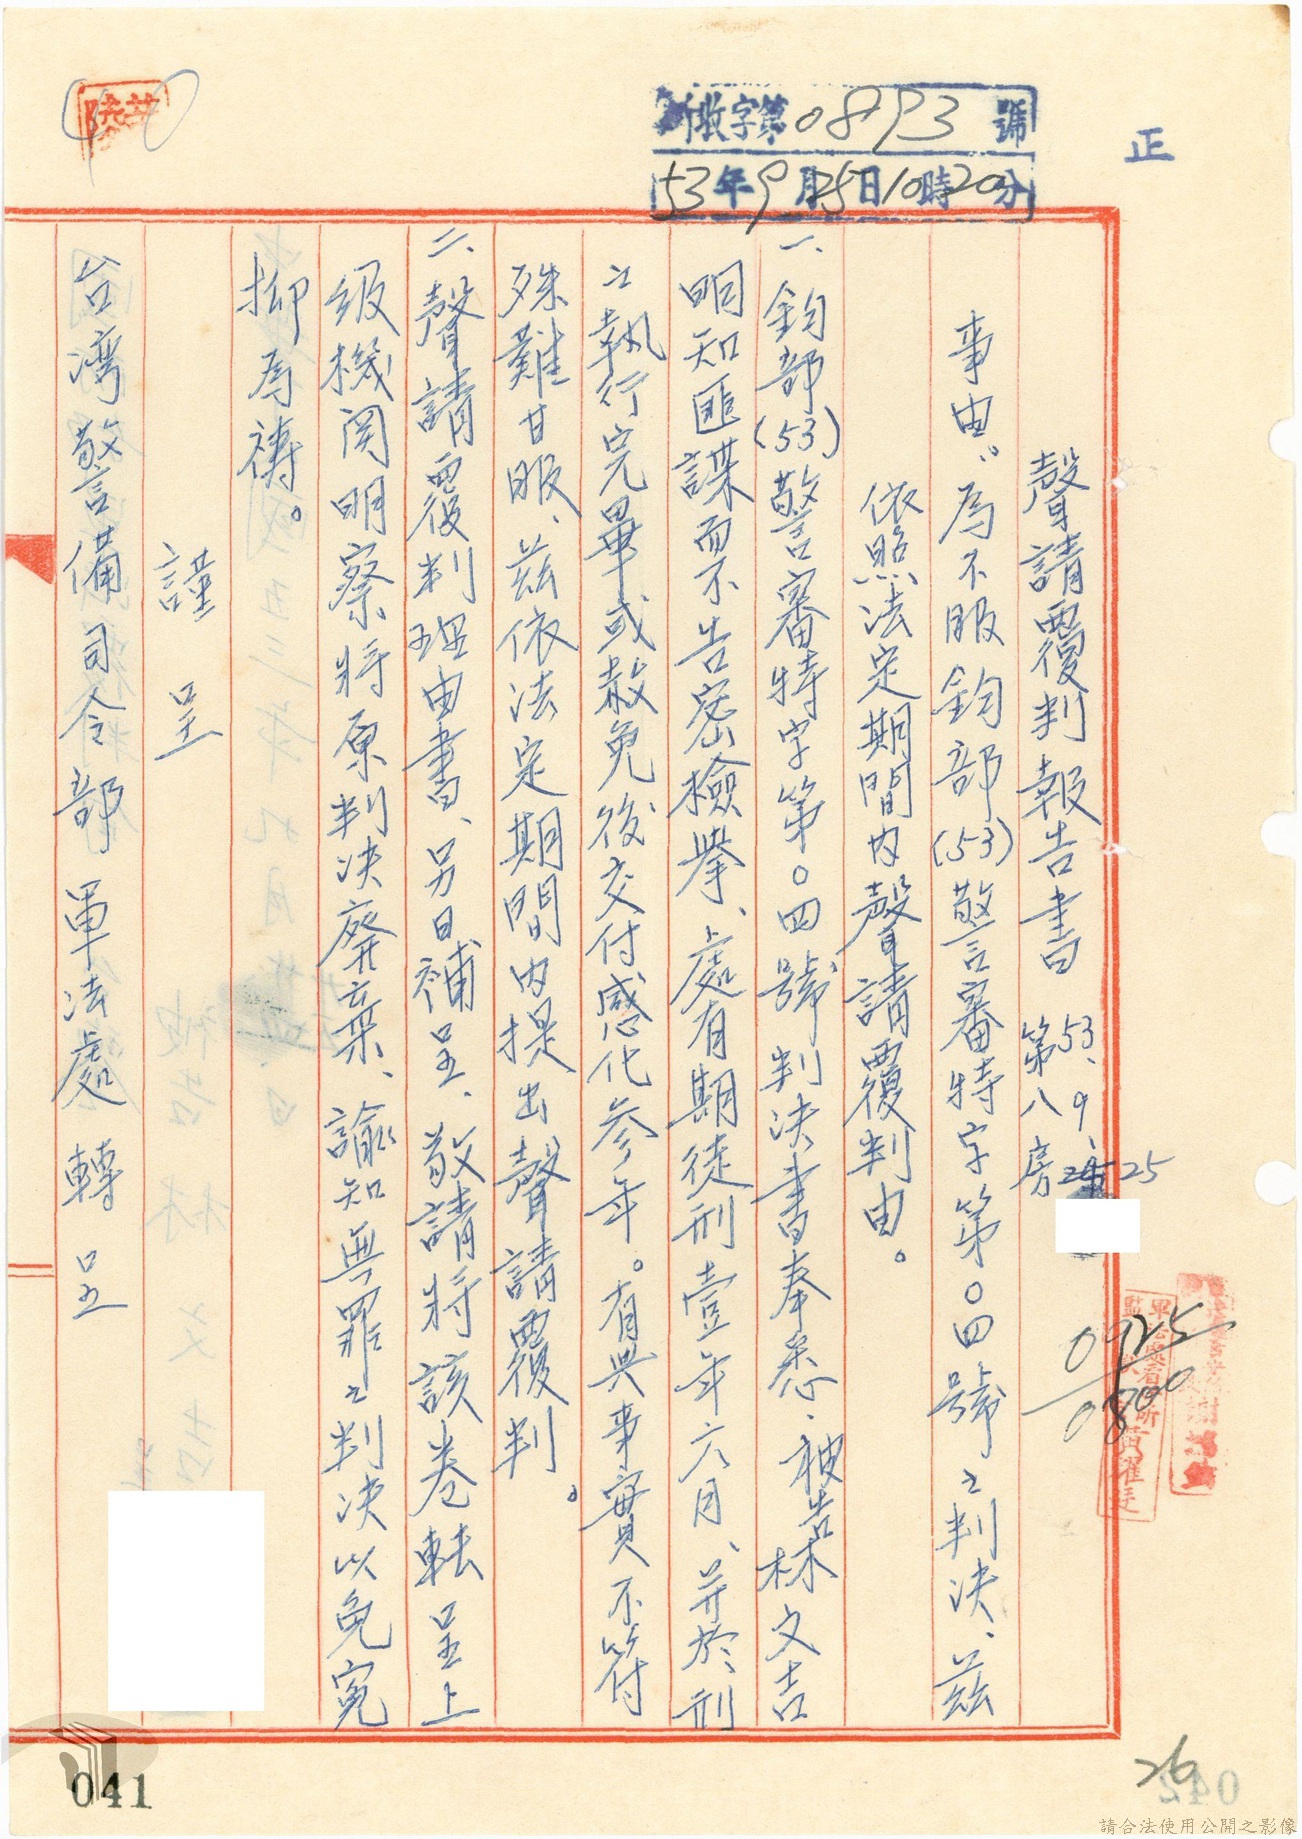 正
所收字第0893號
53年9月25日10時20分
聲請覆判報告書 53、9、25
第八房
事由:為不服鈞部(53)警審特字第〇四號之判決、茲
依照法定期間內聲請覆判由。
一、鈞部(53)警審特字第〇四號判決書奉悉、被告林文吉
明知匪諜而不告密檢舉、處有期徒刑壹年六月、并於刑
之執行完畢或赦免後交付感化参年。有與事實不符
殊難甘服、茲依法定期間內提出聲請覆判。
二、聲請覆判理由書、另日補呈、敬請將該卷転呈上
级機関明察將原判决廃棄、諭知無罪之判决以免寃
抑為禱。
謹呈
台湾警備司令部軍法處 轉呈
0925
0800
041
26
042
請合法使用公開之影像